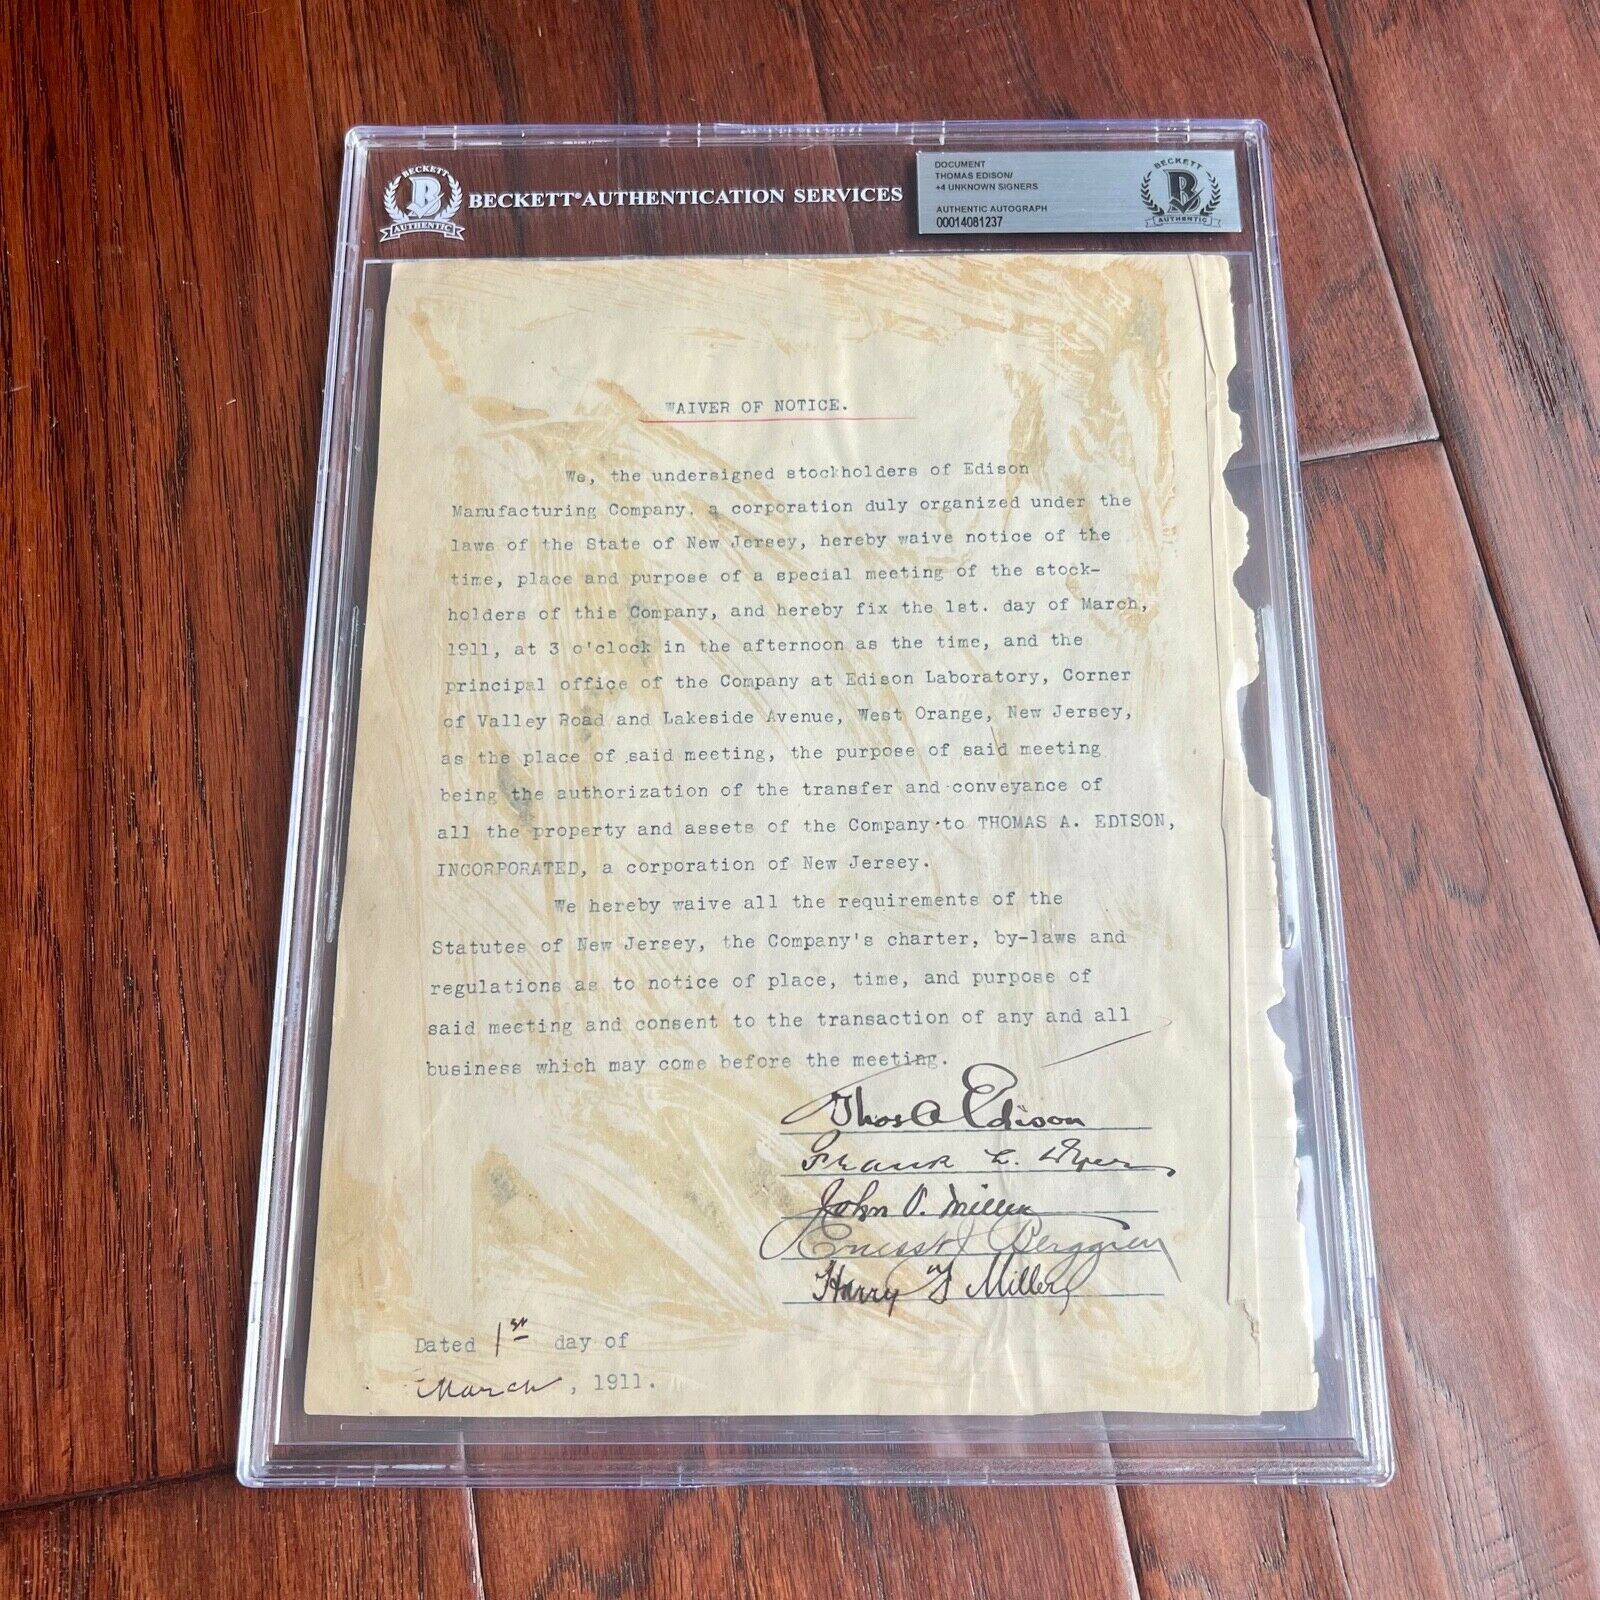 BECKETT
B
AUTHENTIC
BECKETT® AUTHENTICATION SERVICES
DOCUMENT
THOMAS EDISON/
+4 UNKNOWN SIGNERS
AUTHENTIC AUTOGRAPH
00014081237
BECKETT
B
AUTHENTIC
WAIVER OF NOTICE.
We, the undersigned stockholders of Edison
Manufacturing Company, a corporation duly organized under the
laws of the State of New Jersey, hereby waive notice of the
time, place and purpose of a special meeting of the stock-
holders of this Company, and hereby fix the 1st. day of March,
1911, at 3 o'clock in the afternoon as the time, and the
principal office of the Company at Edison Laboratory, Corner
of Valley Road and Lakeside Avenue, West Orange, New Jersey,
as the place of said meeting, the purpose of said meeting
being the authorization of the transfer and conveyance of
all the property and assets of the Company to THOMAS A. EDISON,
INCORPORATED, a corporation of New Jersey.
We hereby waive all the requirements of the
Statutes of New Jersey, the Company's charter, by-laws and
regulations as to notice of place, time, and purpose of
said meeting and consent to the transaction of any and all
business which may come before the meeting.
Thos A Edison
Frank L. Dyer
John V. Miller
Ernest J Berggren
Harry F Miller
Dated 1st day of
March, 1911.